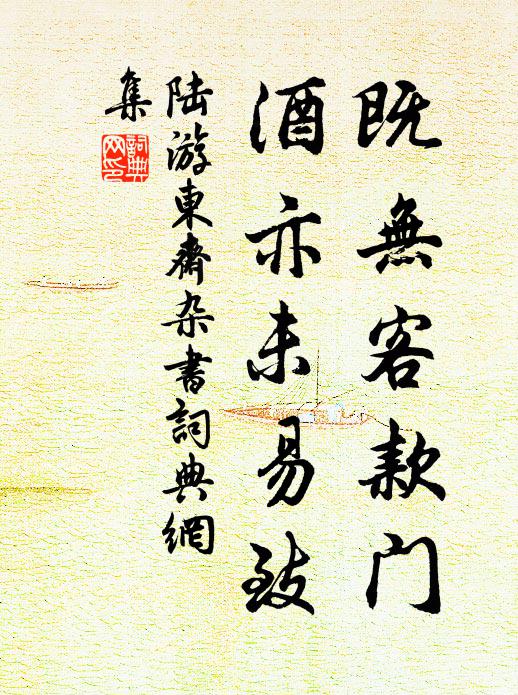 既無客款门
酒亦未易致
陆游東齋杂書詞典網
集
詞典
网印